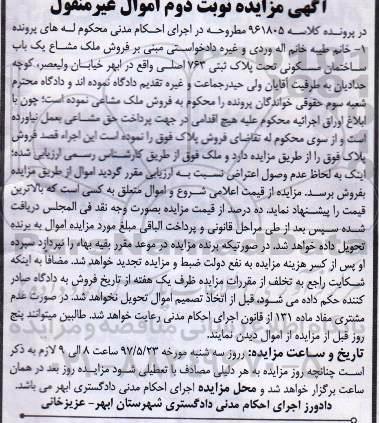 آگهی مزایده نوبت دوم اموال غیرمنقول
در پرونده کلاسه ۹۶۱۸۰۵ مطروحه در اجرای احکام مدنی محکوم له های پرونده
۱- خانم طیبه خانم اله وردی و غیره دادخواستی مبنی بر فروش ملک مشاع یک باب
ساختمان مسکونی تحت پلاک ثبتی ۷۶۳ اصلی واقع در ابهر خیابان ولیعصر، کوچه
حدادیان به طرفیت آقایان ولی حیدرجماعت و غیره تقدیم دادگاه نموده اند و دادگاه محترم
شعبه سوم حقوقی خواندگان پرونده را محکوم به فروش ملک مشاعی نموده است؛ چون با
ابلاغ اوراق اجرائیه محکوم علیه هیچ اقدامی در جهت پرداخت حق مشاعی بعمل نیاورده
است و از سوی محکوم له تقاضای فروش پلاک فوق را نموده است این اجراء قصد فروش
پلاک فوق را از طریق مزایده دارد و ملک فوق از طریق کارشناس رسمی ارزیابی شده؛
اینک به لحاظ عدم وصول اعتراض نسبت به ارزیابی مقرر گردید اموال از طریق مزایده
بفروش برسد. مزایده از قیمت اعلامی شروع و اموال متعلق به کسی است که بالاترین
قیمت را پیشنهاد نماید. ده درصد از قیمت مزایده بصورت وجه نقد فی المجلس دریافت
شده سپس بعد از طی مراحل قانونی و پرداخت الباقی مبلغ مورد مزایده اموال به برنده
تحویل داده خواهد شد. در صورتیکه برنده مزایده در موعد مقرر بقیه بهاء را نپردازد سپرده
او پس از کسر هزینه مزایده به نفع دولت ضبط و مزایده تجدید خواهد شد. مضافا به اینکه
شکایت راجع به تخلف از مقررات مزایده ظرف یک هفته از تاریخ فروش به دادگاه صادر
کننده حکم داده می شود، قبل از اتخاذ تصمیم اموال تحویل نخواهد شد. در صورت عدم
مشتری مفاد ماده ۱۳۱ از قانون اجرای احکام مدنی رعایت خواهد شد. طالبین میتوانند پنج
روز قبل از مزایده از اموال دیدن نمایند.
تاریخ و ساعت مزایده: رروز سه شنبه مورخه ۹۷/۵/۲۳ ساعت ۸ الی ۹ لازم به ذکر
است چنانچه روز مزایده به هر دلیلی مصادف با تعطیلی شود مزایده روز بعد در همان
ساعت برگزار خواهد شد و محل مزایده اجرای احکام مدنی دادگستری ابهر می باشد.
دادورز اجرای احکام مدنی دادگستری شهرستان ابهر- عزیزخانی